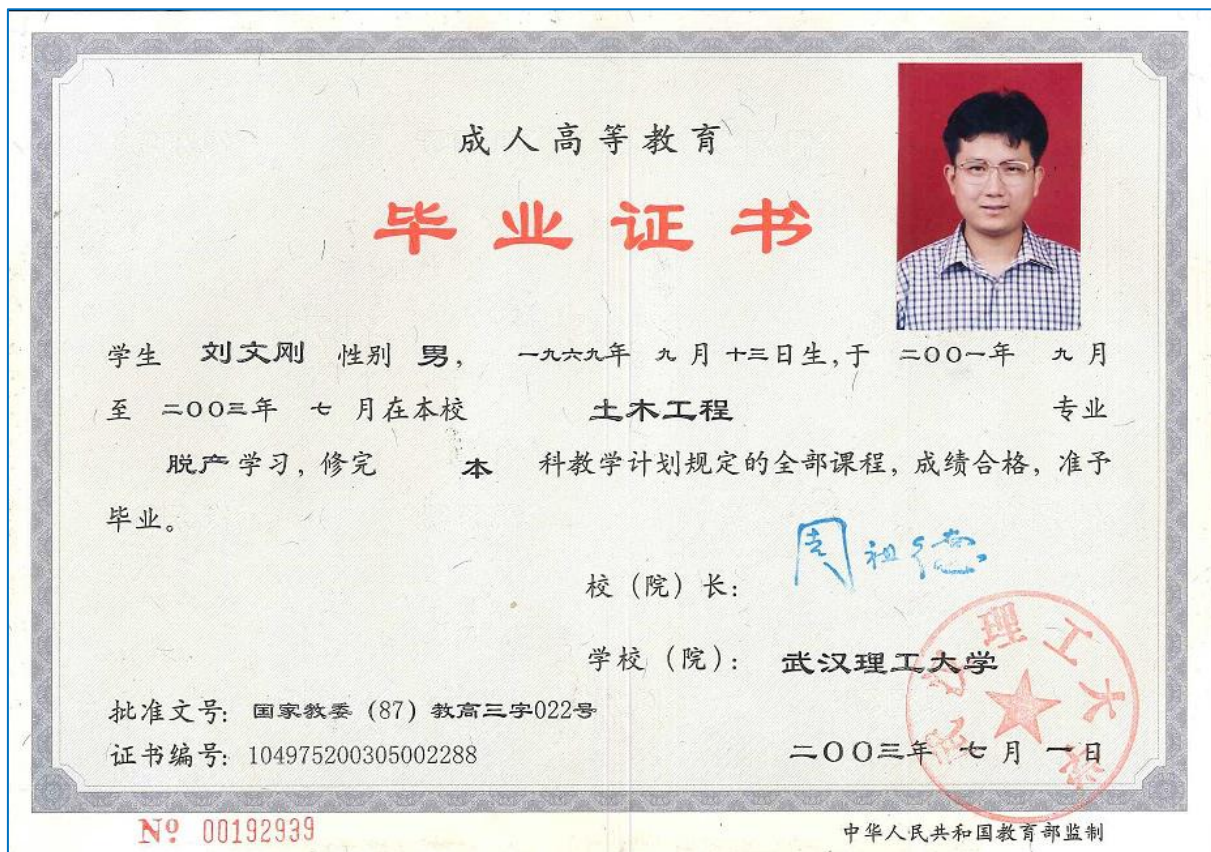 成人高等教育
毕业证书
学生 刘文刚 性别 男, 一九六九年 九月 十三日生,于 二〇〇一年 九月
至 二〇〇三年 七 月在本校 土木工程 专业
脱产学习, 修完 本 科教学计划规定的全部课程, 成绩合格, 准予
毕业。
校(院)长: 周祖德
学校(院): 武汉理工大学
武汉理工大学
批准文号: 国家教委(87)教高三字022号
证书编号: 104975200305002288
二〇〇三年 七月 一日
Nº 00192939
中华人民共和国教育部监制